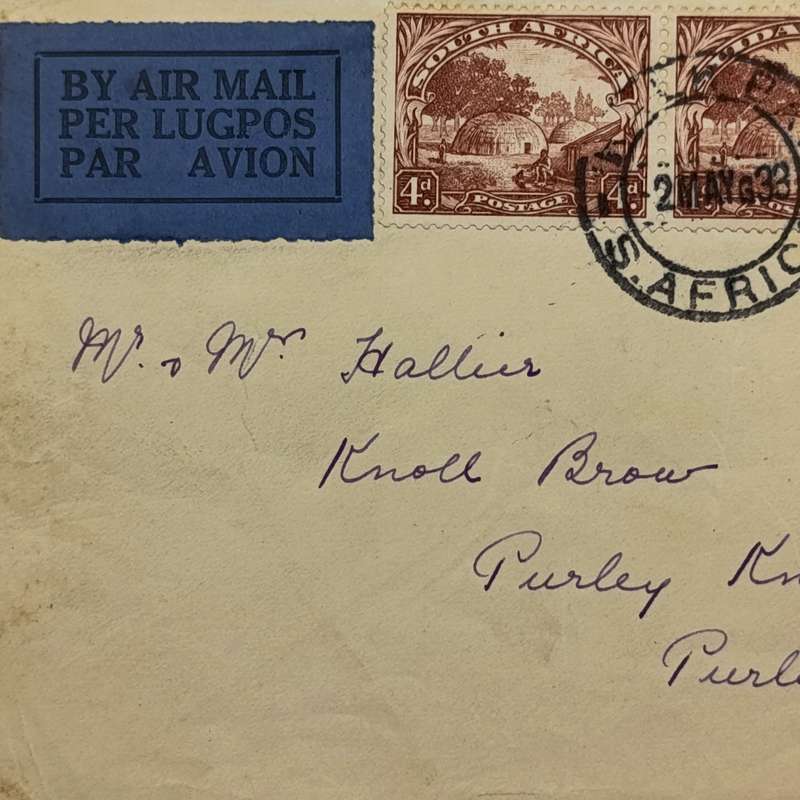 BY AIR MAIL
PER LUGPOS
PAR AVION
SOUTH AFRICA
4d. POSTAGE 4d.
2 MAY 33
S. AFRIC
Mr. & Mrs. Hallier
Knoll Brow
Purley Kn
Purle